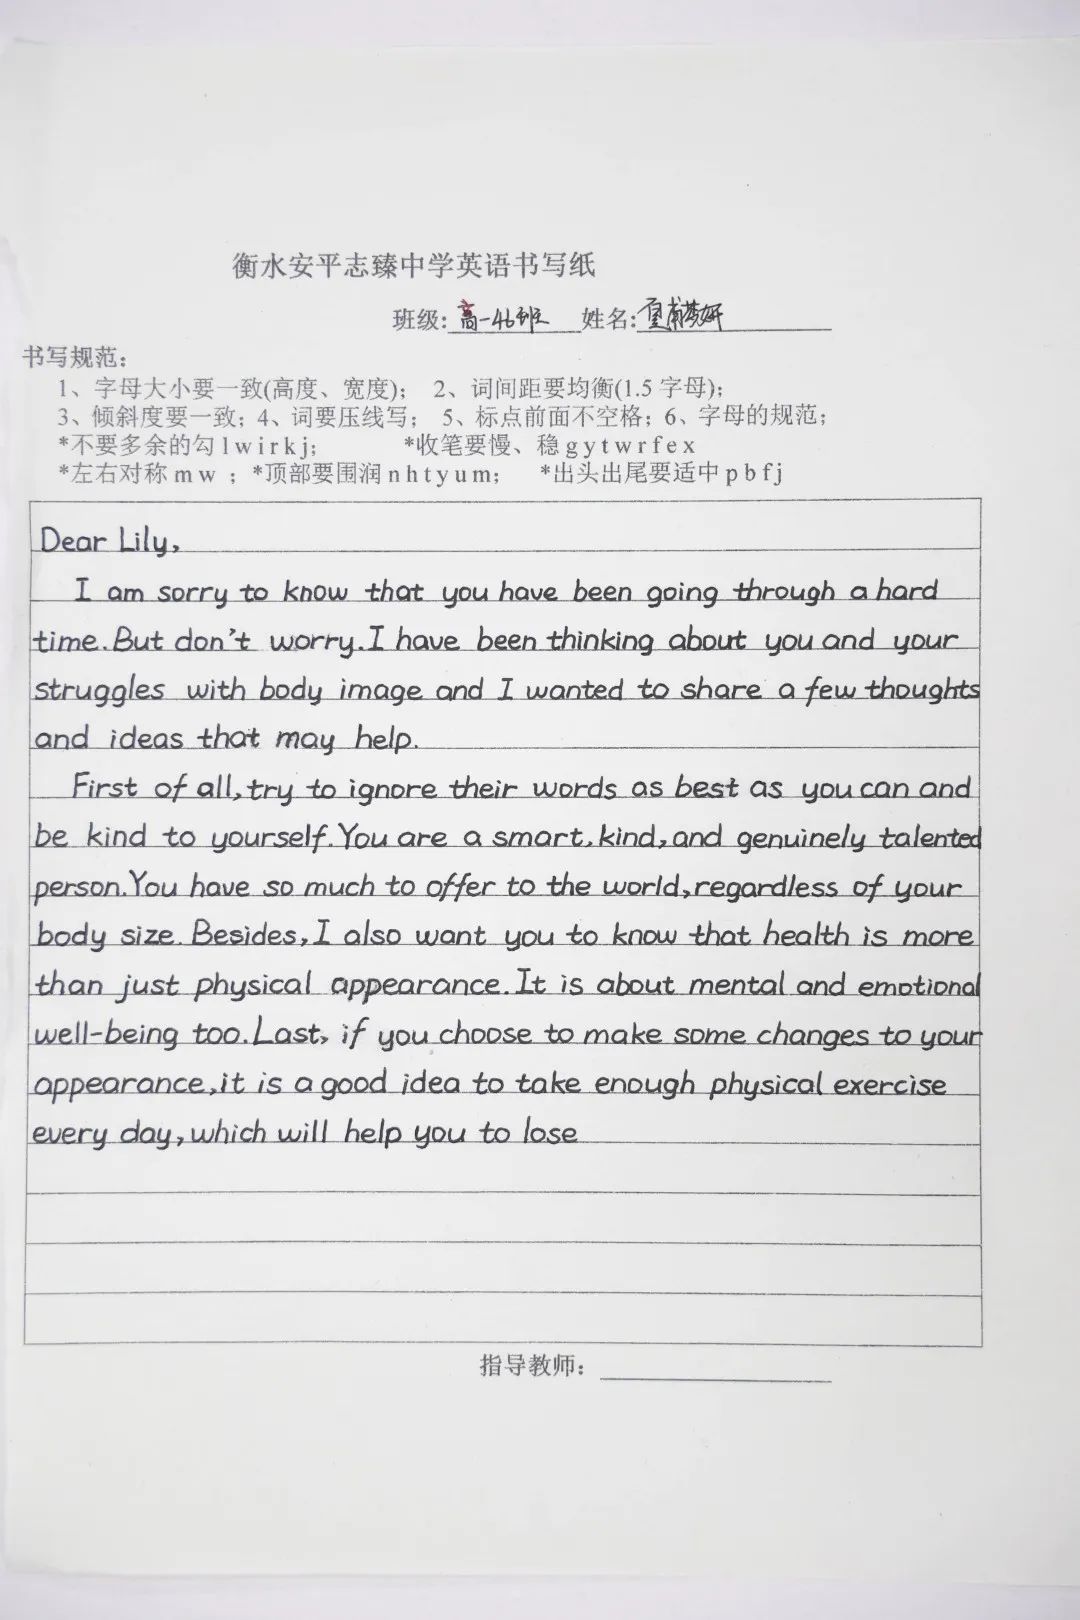 衡水安平志臻中学英语书写纸
班级:高一46班 姓名:皇甫梦妍
书写规范:
1、字母大小要一致(高度、宽度); 2、词间距要均衡(1.5 字母);
3、倾斜度要一致; 4、词要压线写; 5、标点前面不空格; 6、字母的规范;
*不要多余的勾 l w i r k j; *收笔要慢、稳 g y t w r f e x
*左右对称 m w ; *顶部要围润 n h t y u m; *出头出尾要适中 p b f j
Dear Lily,
I am sorry to know that you have been going through a hard
time. But don't worry. I have been thinking about you and your
struggles with body image and I wanted to share a few thoughts
and ideas that may help.
First of all, try to ignore their words as best as you can and
be kind to yourself. You are a smart, kind, and genuinely talented
person. You have so much to offer to the world, regardless of your
body size. Besides, I also want you to know that health is more
than just physical appearance. It is about mental and emotional
well-being too. Last, if you choose to make some changes to your
appearance, it is a good idea to take enough physical exercise
every day, which will help you to lose
指导教师: